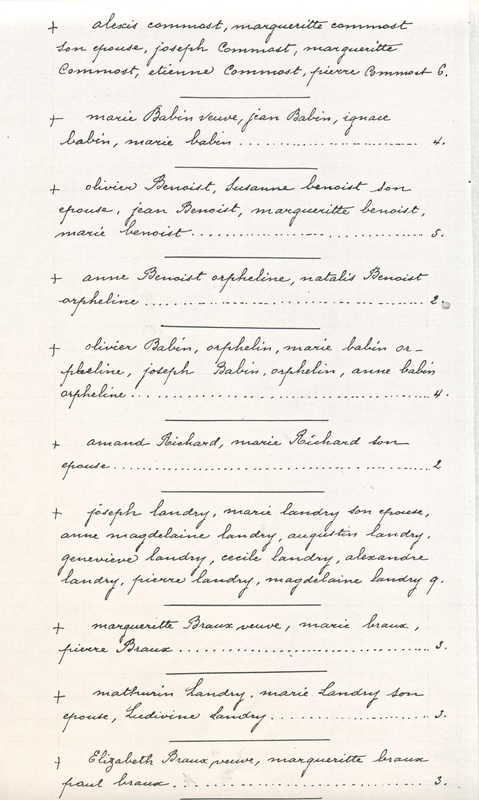 + alexis commost, margueritte commost
son epouse, joseph Commost, margueritte
Commost, etienne Commost, pierre Commost 6.
+ marie Babin veuve, jean Babin, ignace
babin, marie babin .......................... 4.
+ olivier Benoist, Susanne benoist son
epouse, jean Benoist, margueritte benoist,
marie benoist .............................. 5.
+ anne Benoist orpheline, natalis Benoist
orpheline ................................. 2.
+ olivier Babin, orphelin, marie babin or-
pheline, joseph Babin, orphelin, anne babin
orpheline ................................. 4.
+ amand Richard, marie Richard son
epouse .................................... 2
+ joseph landry, marie landry son epouse,
anne magdelaine landry, augustin landry,
genevieve landry, cecile landry, alexandre
landry, pierre landry, magdelaine landry 9.
+ margueritte Braux veuve, marie braux,
pierre Braux .............................. 3.
+ mathurin landry, marie Landry son
epouse, Ludivine Landry .................... 3.
+ Elizabeth Braux, veuve, margueritte braux
paul braux ................................ 3.